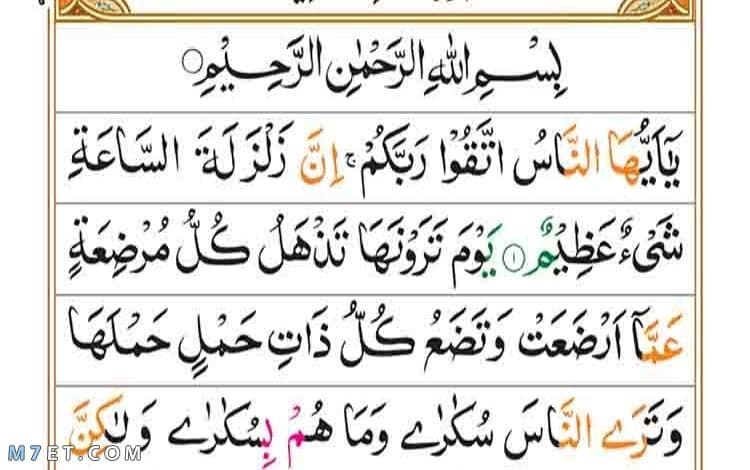 بِسْمِ اللهِ الرَّحْمٰنِ الرَّحِيْمِ
يٰٓاَيُّهَا النَّاسُ اتَّقُوْا رَبَّكُمْ ۚ اِنَّ زَلْزَلَةَ السَّاعَةِ
شَيْءٌ عَظِيْمٌ ۝١ يَوْمَ تَرَوْنَهَا تَذْهَلُ كُلُّ مُرْضِعَةٍ
عَمَّآ اَرْضَعَتْ وَتَضَعُ كُلُّ ذَاتِ حَمْلٍ حَمْلَهَا
وَتَرَى النَّاسَ سُكٰرٰى وَمَا هُمْ بِسُكٰرٰى وَلٰكِنَّ
M7ET.COM